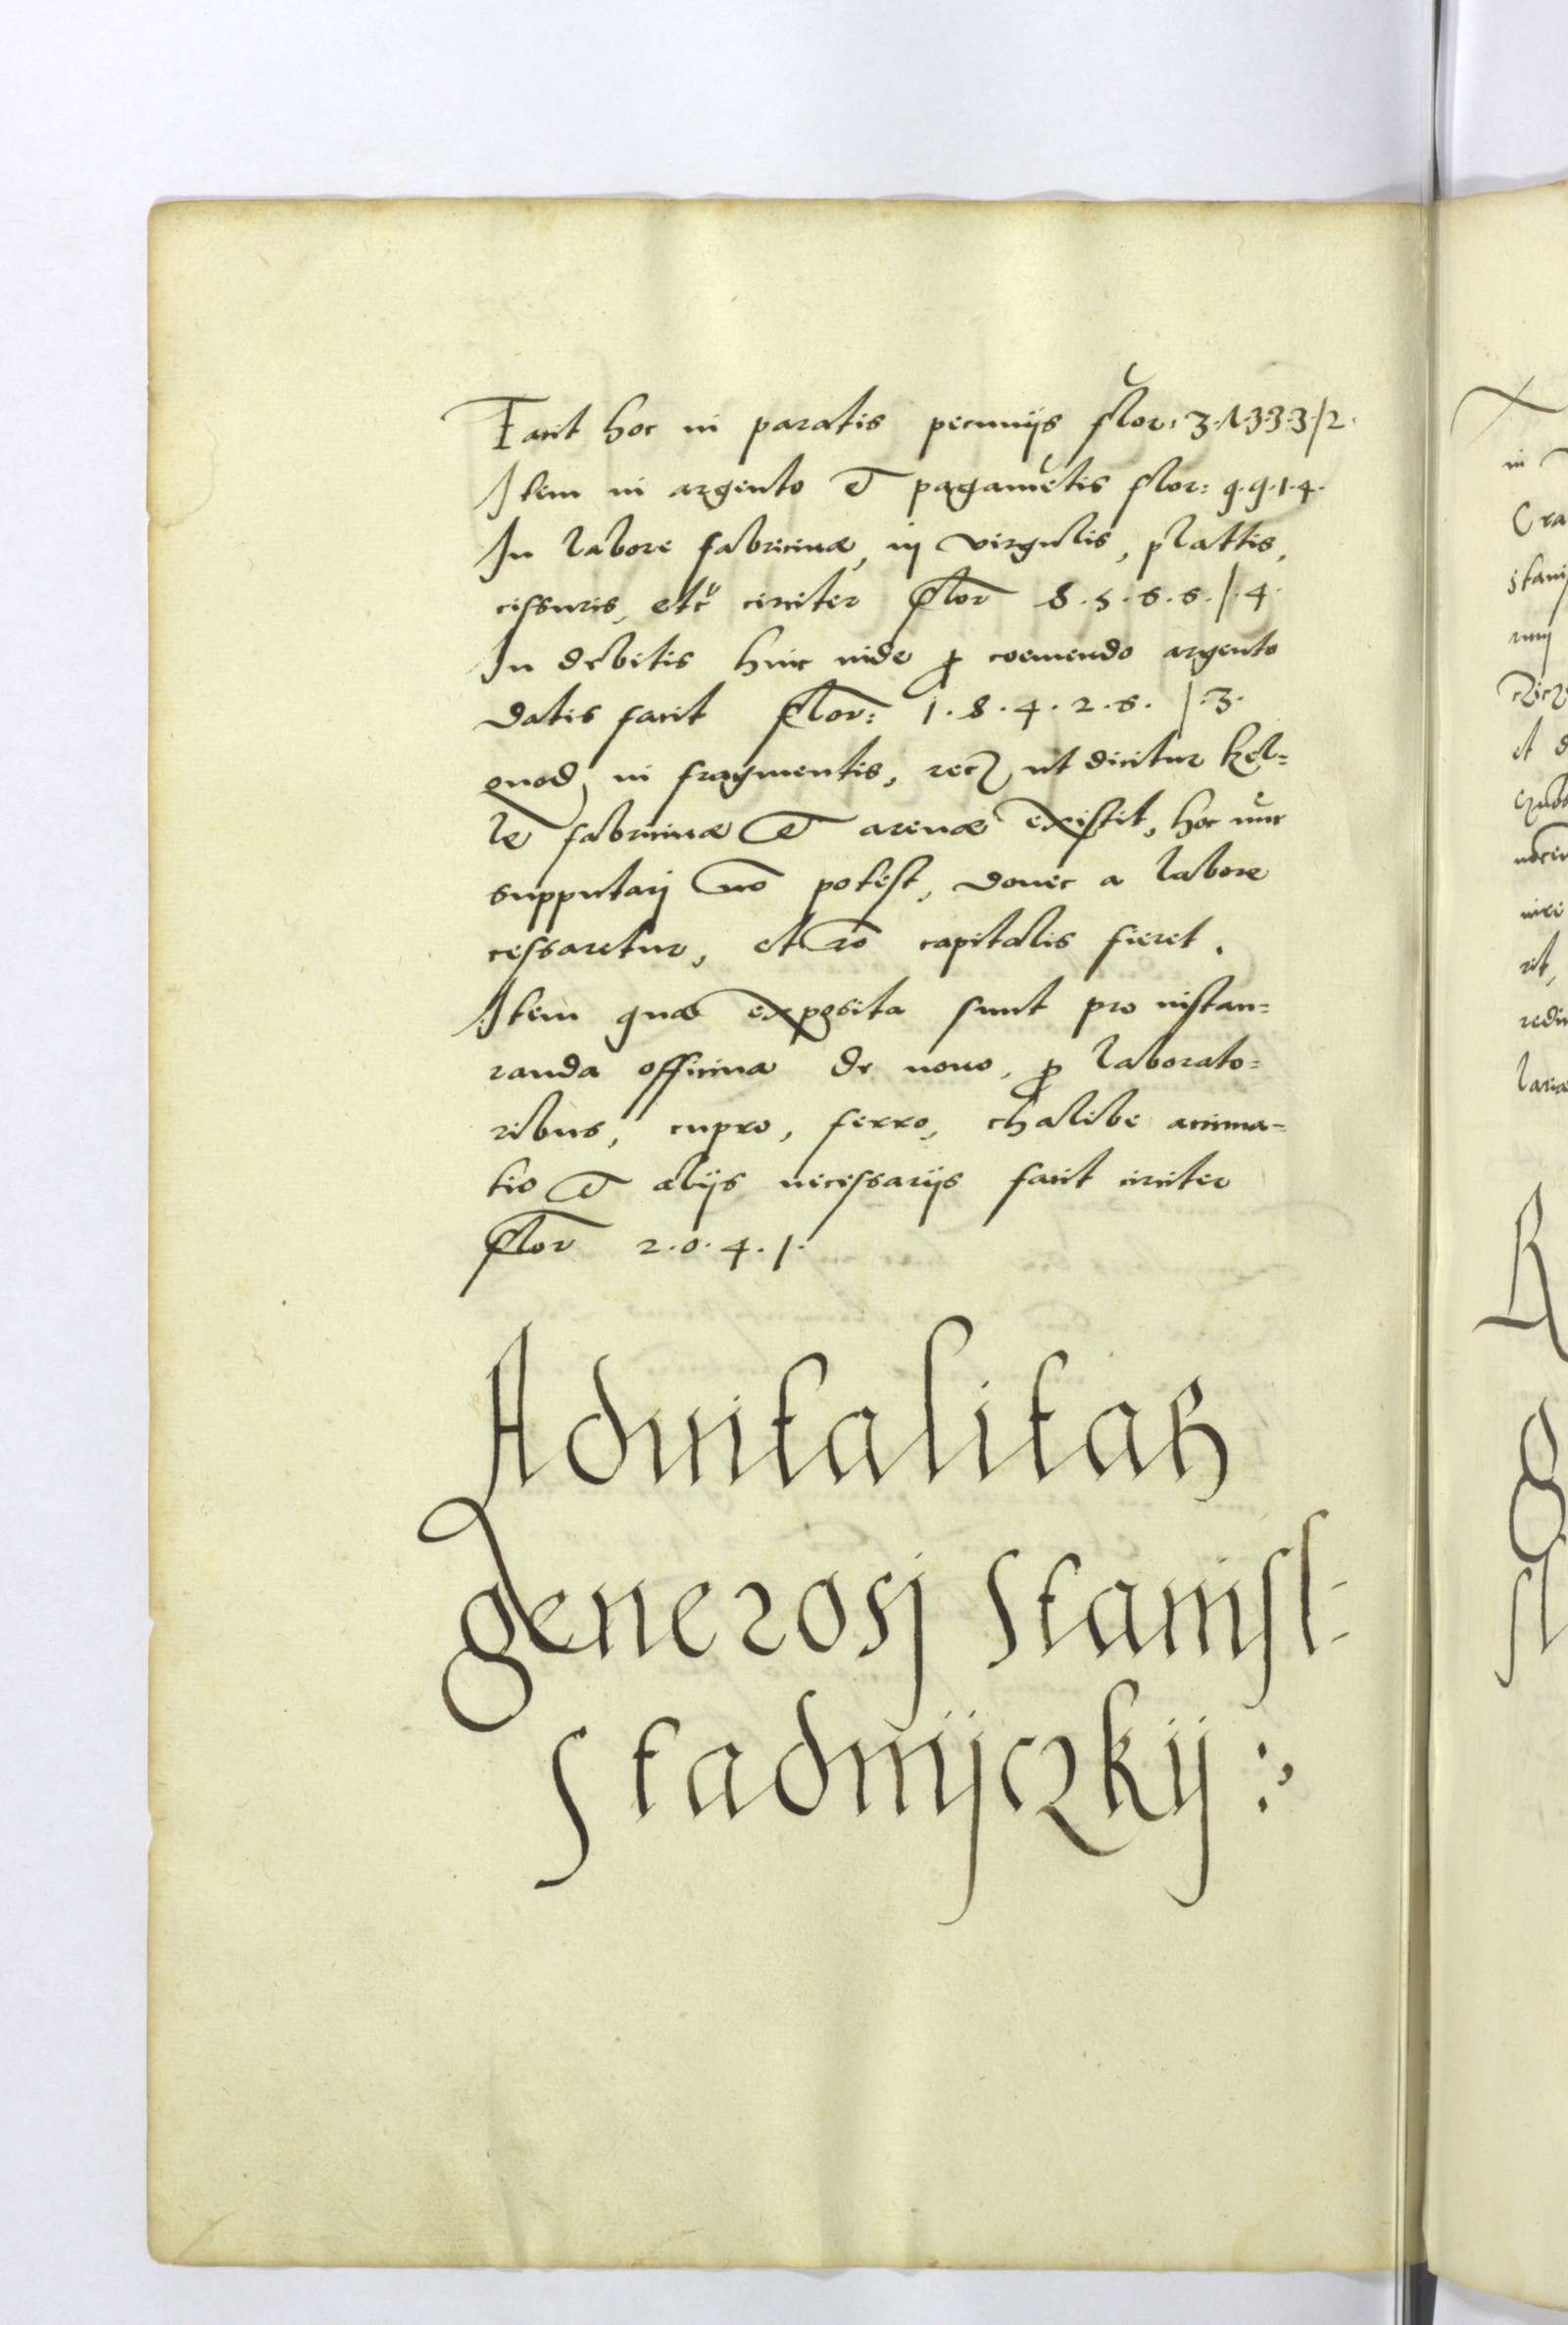 Facit hoc in paratis pecunijs flor: 3.1.3.3.3./2.
Item in argento et pagamētis flor: 9.9.1.4.
In labore fabricinæ, in virgulis, plattis,
cissuris, etc circiter flor 8.5.6.6./.4.
In debitis hinc inde ꝓ coemendo argento
datis facit flor: 1.8.4.2.6./.3.
quod in fragmentis, ut dicitur kel=
le fabricinæ et arenæ existit, hoc nūc
supputarj nō potest, donec a labore
cessaretur, et rō capitalis fieret.
Item quæ exposita sunt pro instau=
randa officina de nouo, ꝓ laborato=
ribus, cupro, ferro, chalibe
tio et alijs necessarijs facit circiter
flor 2.0.4.1.
Aduitalitas
generosj Stanisl:
Stadnijczkij:
in
Cra
stani
et d
rit,